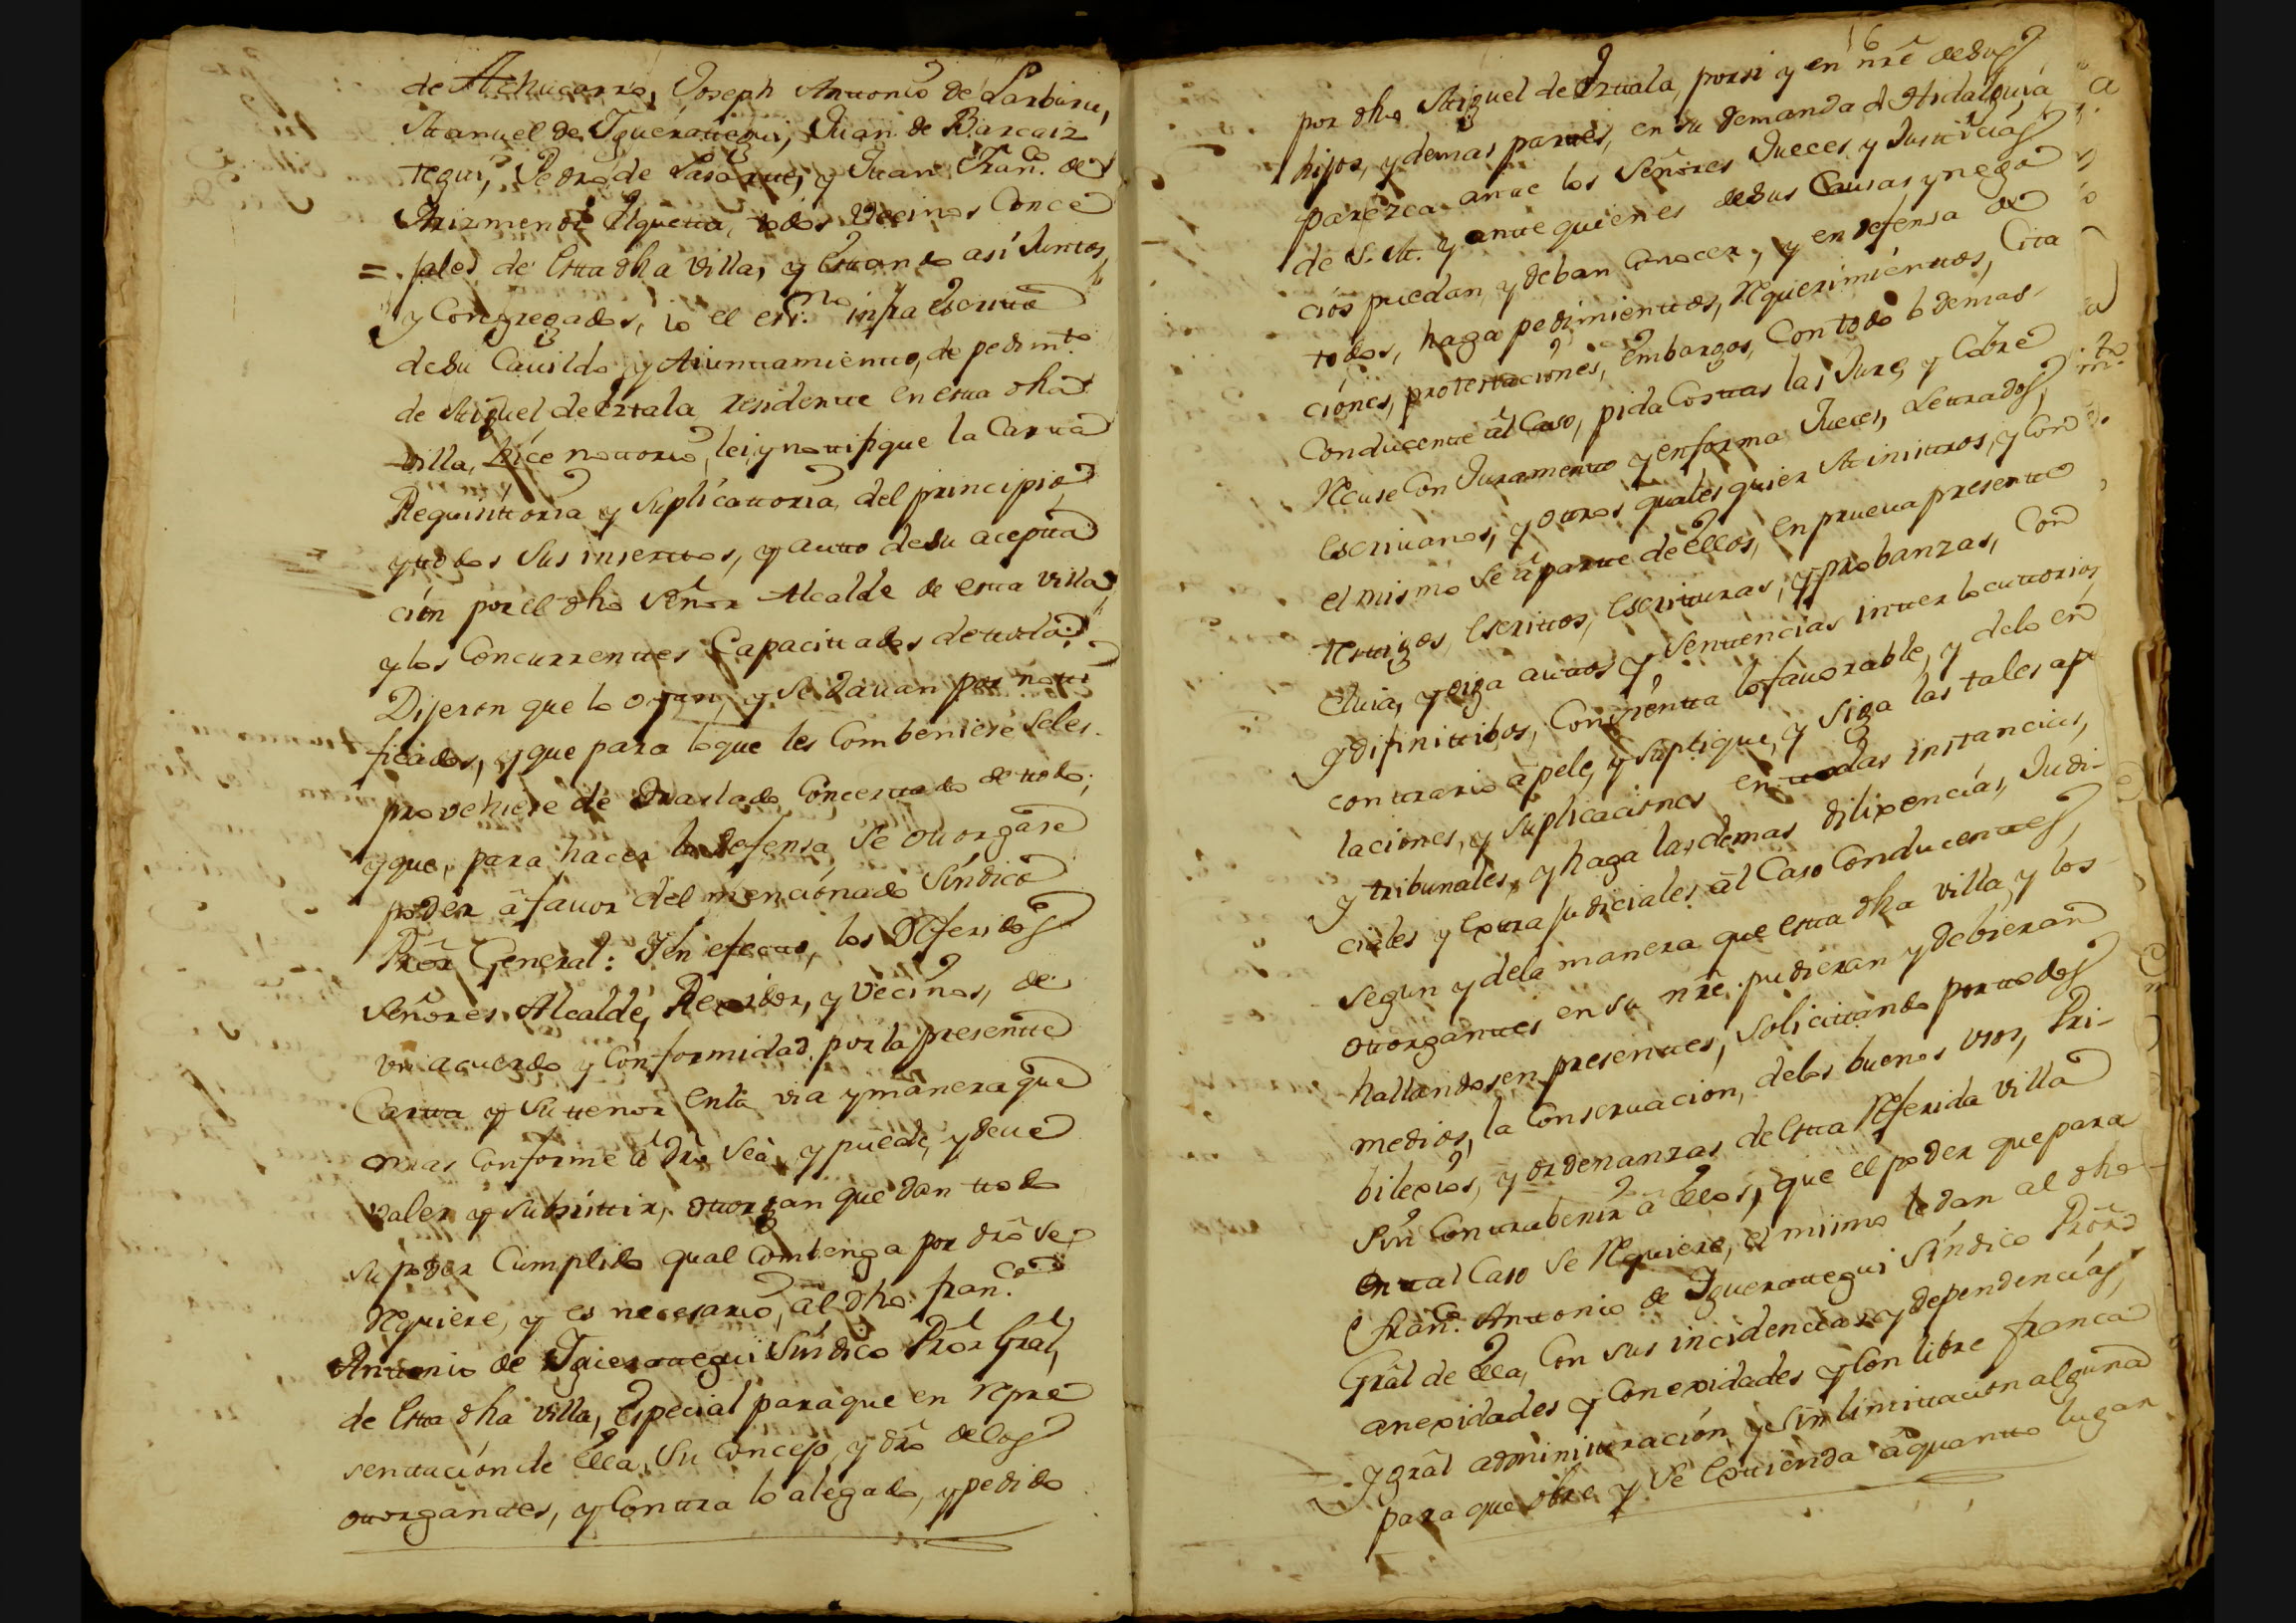 de Achucarro, Joseph Antonio de Larburu,
Manuel de Yguerategui, Juan de Barcaiz
tegui, Pedro de Lasarte, y Juan Franco. de
Arizmendi Elquetta, todos Vecinos Conce
= jales de Estta dha villa, y Esttando así Junttos,
y Congregados, io el essno. infra Escritto
de su Cavildo y Aiunttamientto, de pedimto.
de Miguel de Erttala residentte en estta dha
villa, hice nottorio, lei, y nottifique la Cartta
Requisittoria y Suplicattoria del principio
y ttodos Sus inserttos, y autto de su acepta
ción por el dho Señor Alcalde de estta villa,
y los Concurrenttes Capacittados de ttodo:
Dijeron que lo oyan, y Se davan por notti
ficados, y que para lo que les Combeniere, Seles
provehiere de traslado Concerttado de ttodo;
y que, para hacer la defensa, Se ottorgase
poder â favor del mencionado Síndico
Prôr General: Yen efectto, los Referidos
Señores Alcalde, Rexidor, y Vecinos, de
vn acuerdo y Conformidad, por la presentte
Cartta y su ttenor, Enla via y manera que
mas Conforme â drô. Sea y puede, y deve
valer y subsisttir, ottorgan que dan ttodo
su poder Cumplido qual Combenga por drô Se
requiere, y es necesario, al dho. franco.
Anttonio de Yguerategui Síndico Prôr Gral,
de Estta dha villa, Especial para que en repre
senttación de Ella, Su Concejo y drô. de los
ottorganttes, y Conttra lo alegado, y pedido
16
por dho Miguel de Erttala, por si y en nrê de sus
hijos, y demas parttes, en su demanda de Hidalguia
parezca antte los Señores Jueces y Justticias
de S. M. y antte quienes de sus Causas y nego
cios puedan y deban Conocer, y en defensa de
todos, haga pedimienttos, requerimienttos, Citta
ciones, prottesttaciones, Embargos, Con todo lo demas
Conducentte âl Caso, pida Costtas las Jure, y Cobre
Recuse Con Juramentto y en forma Jueces, Lettrados,
Escrivanos, y ottros qualesquier Ministtros, y Con
el mismo Se âpartte de ellos, en prueva presentte
testtigos, Escrittos, Escritturas, y probanzas, Con
cluia, y oiga auttos y Senttencias intterlocuttorios,
y difinittibos, Consientta lo favorable, y delo en
conttrario âpele, y suplique, y Siga las tales ape
laciones, y Suplicaciones en ttodas insttancias,
y tribunales, y haga las demas dilixencias, Judi-
ciales y Exttrajudiciales al Caso Conducenttes,
segun y dela manera que estta dha villa y los
ottorganttes en su nrê. pudieran y debieran
hallandosen presenttes, Solicittando por ttodos
medios, la Conservacion, delos buenos vsos, Pri-
bilexios, y ordenanzas de Estta Referida villa
Sin Conttrabenir â Ellos, que el poder que para
en ttal Caso Se Requiere, el mismo le dan al dho
franco. Anttonio de Yguerategui Síndico Prôr
Gral de Ella, Con sus incidencias y dependencias,
anexidades y Conexidades y Con libre franca
y gral administtración, y Sin limittacion alguna
para que obre, y Se Exttienda â quantto lugar